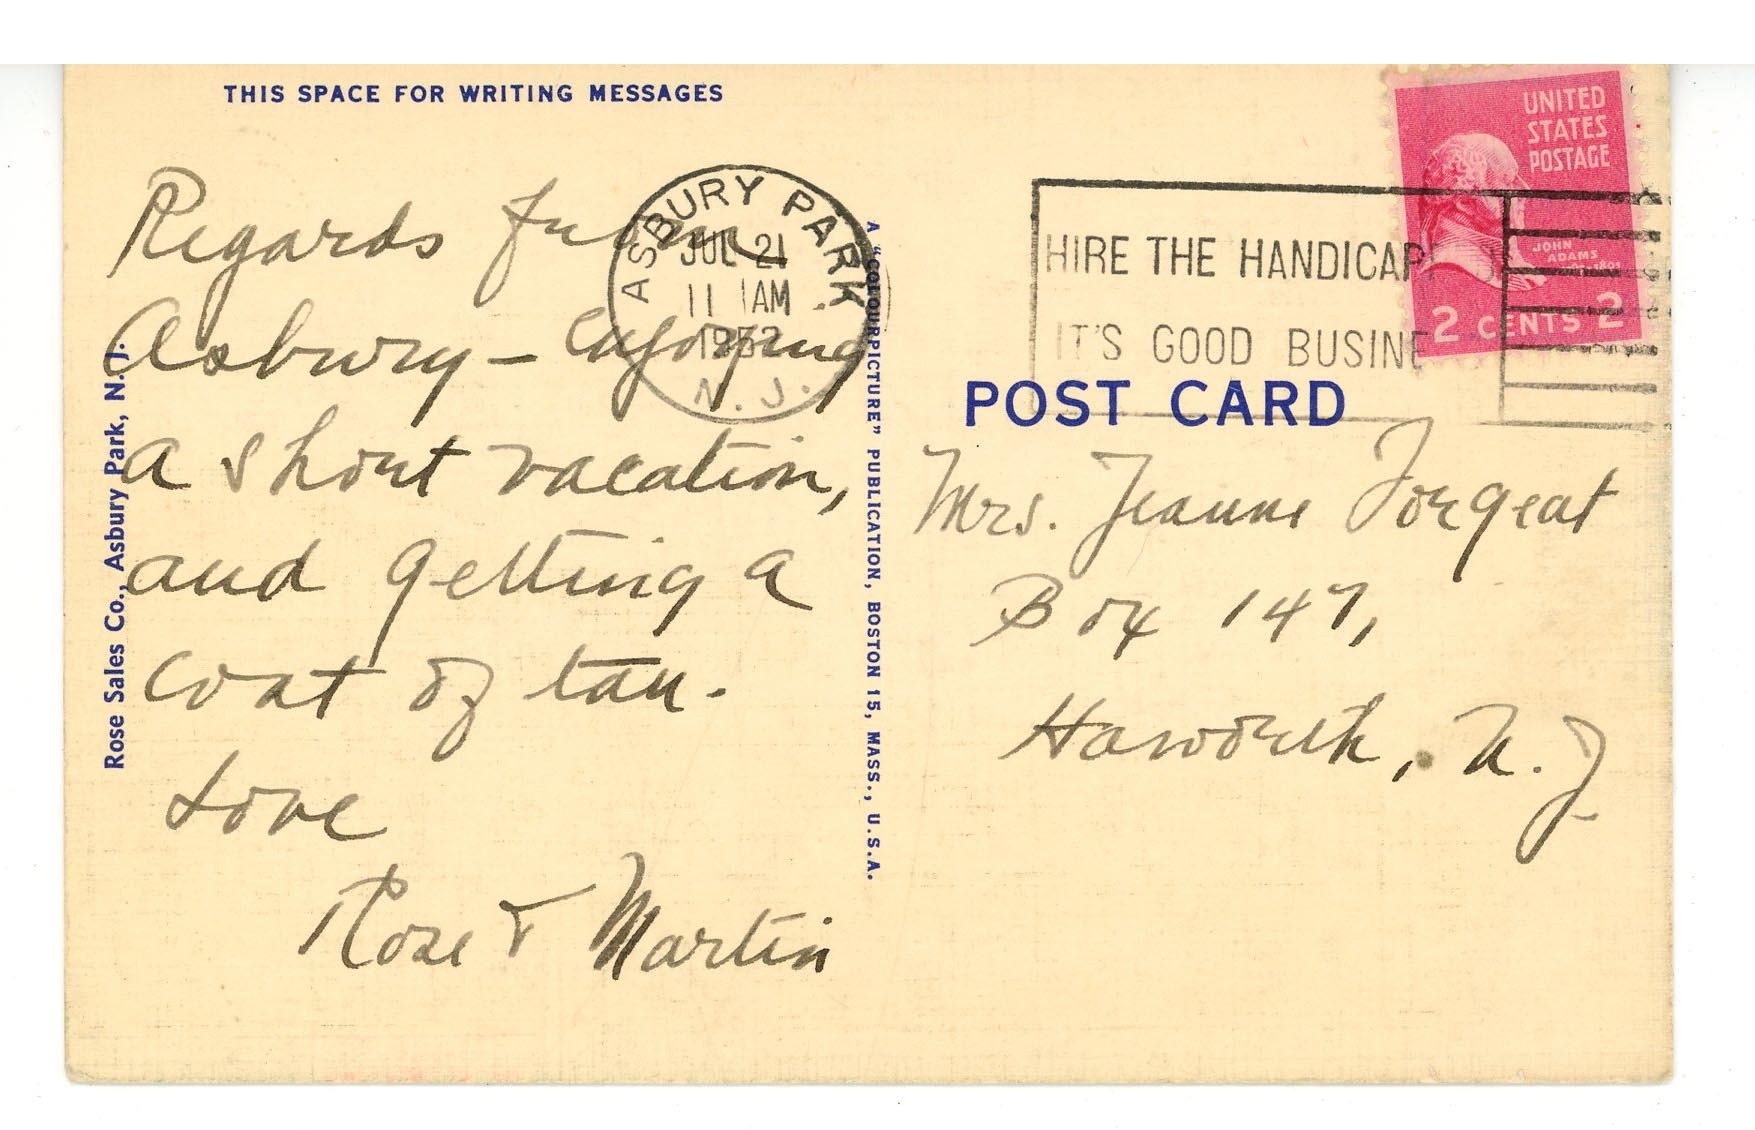 THIS SPACE FOR WRITING MESSAGES
Regards from
Asbury – Enjoying
a short vacation,
and getting a
coat of tan.
Love
Rose & Martin
Rose Sales Co., Asbury Park, N. J.
A "COLOURPICTURE" PUBLICATION, BOSTON 15, MASS., U.S.A.
ASBURY PARK
JUL 21
11 AM
1952
N. J.
HIRE THE HANDICAP
IT'S GOOD BUSINE
UNITED
STATES
POSTAGE
JOHN
ADAMS
2 CENTS 2
POST CARD
Mrs. Jeanne Forgeat
Box 147,
Haworth, N. J.